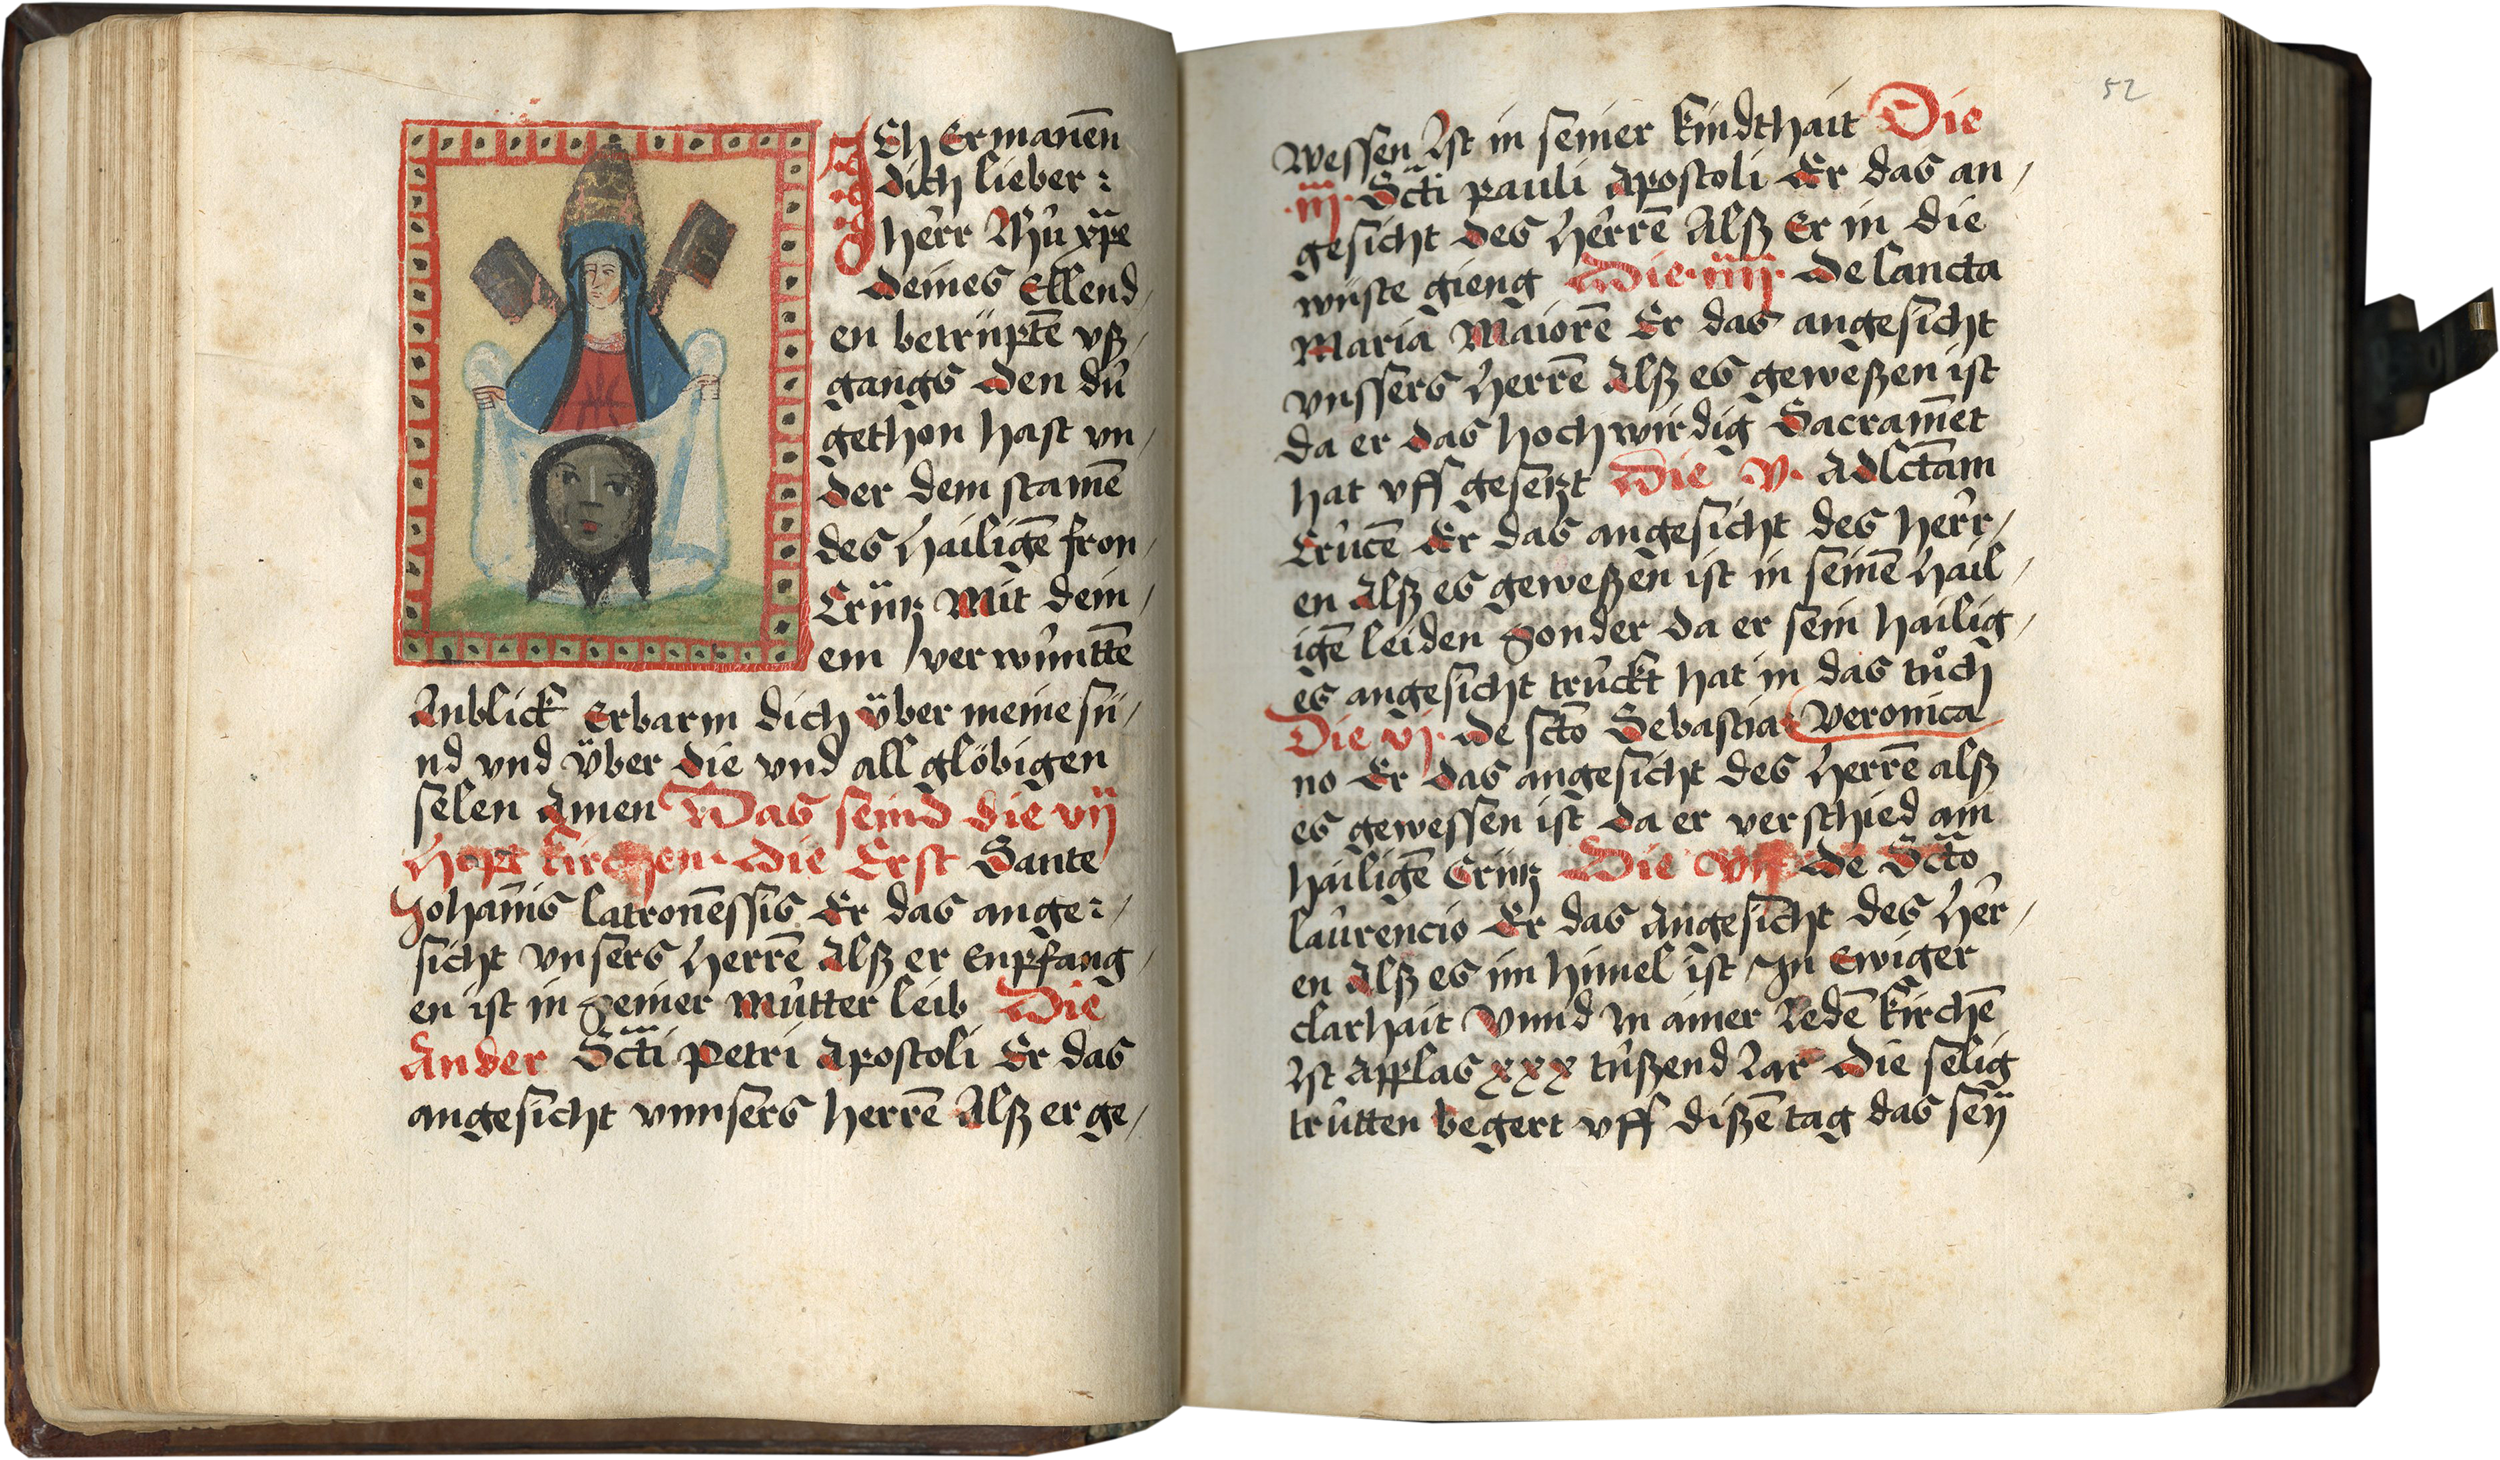 ICh Ermanen̄
dich lieber :
herr Jhū xp̄e
deines Ellend
en betrüpte͞ vß
gangs den dū
gethon hast vn
der dem stame͞
des hailige͞ fron
Crütz Mit dein
em verwūntte͞
Anblick Erbarm dich über meine sü
nd vnd über die vnd all glöbigen
selen Amen Was seind die vij
Hopt kirchen · Die Erst Sante
Johan̄is latronen̄ssis Er das ange:
sicht vnsers Herre͞ Alß er enpfang
en ist in seiner Mūtter leib Die
Ander Sct̄i Petri Apostoli Er das
angesicht vnnsers herre͞ Alß er ge
52
wessen Ist in seiner kindthait Die
·iij· Sct̄i pauli Apostoli Er das an
gesicht des Herre͞ Alß Er in die
wüste gieng Die ·iiij· De sancta
Maria Maiore͞ Er das angesicht
vnssers Herre͞ Alß es geweßen ist
da er das hochwirdig Sacramet̄
hat vff gesetzt Die v· Adsct̄am
Crūce͞ Er das angesicht des herr
en Alß es geweßen ist in seine͞ hail
ige͞ leiden sonder da er sein hailig
es angesicht trūckt hat in das tůch
Veronica
Die vj· de sct̄o Sebastia
no Er das angesicht des Herre͞ alß
es gewessen ist da er verschied am
hailige͞ Crütz Die vij de Sct̄o
laūrencio Er das Angesicht des Her
en Alß es im himel ist In Ewiger
clarhait Vnnd In ainer Jede͞ kirche͞
Ist Applas xxx tūßend Jar Die selig
trūtten begert vff diße͞ tag das seÿ